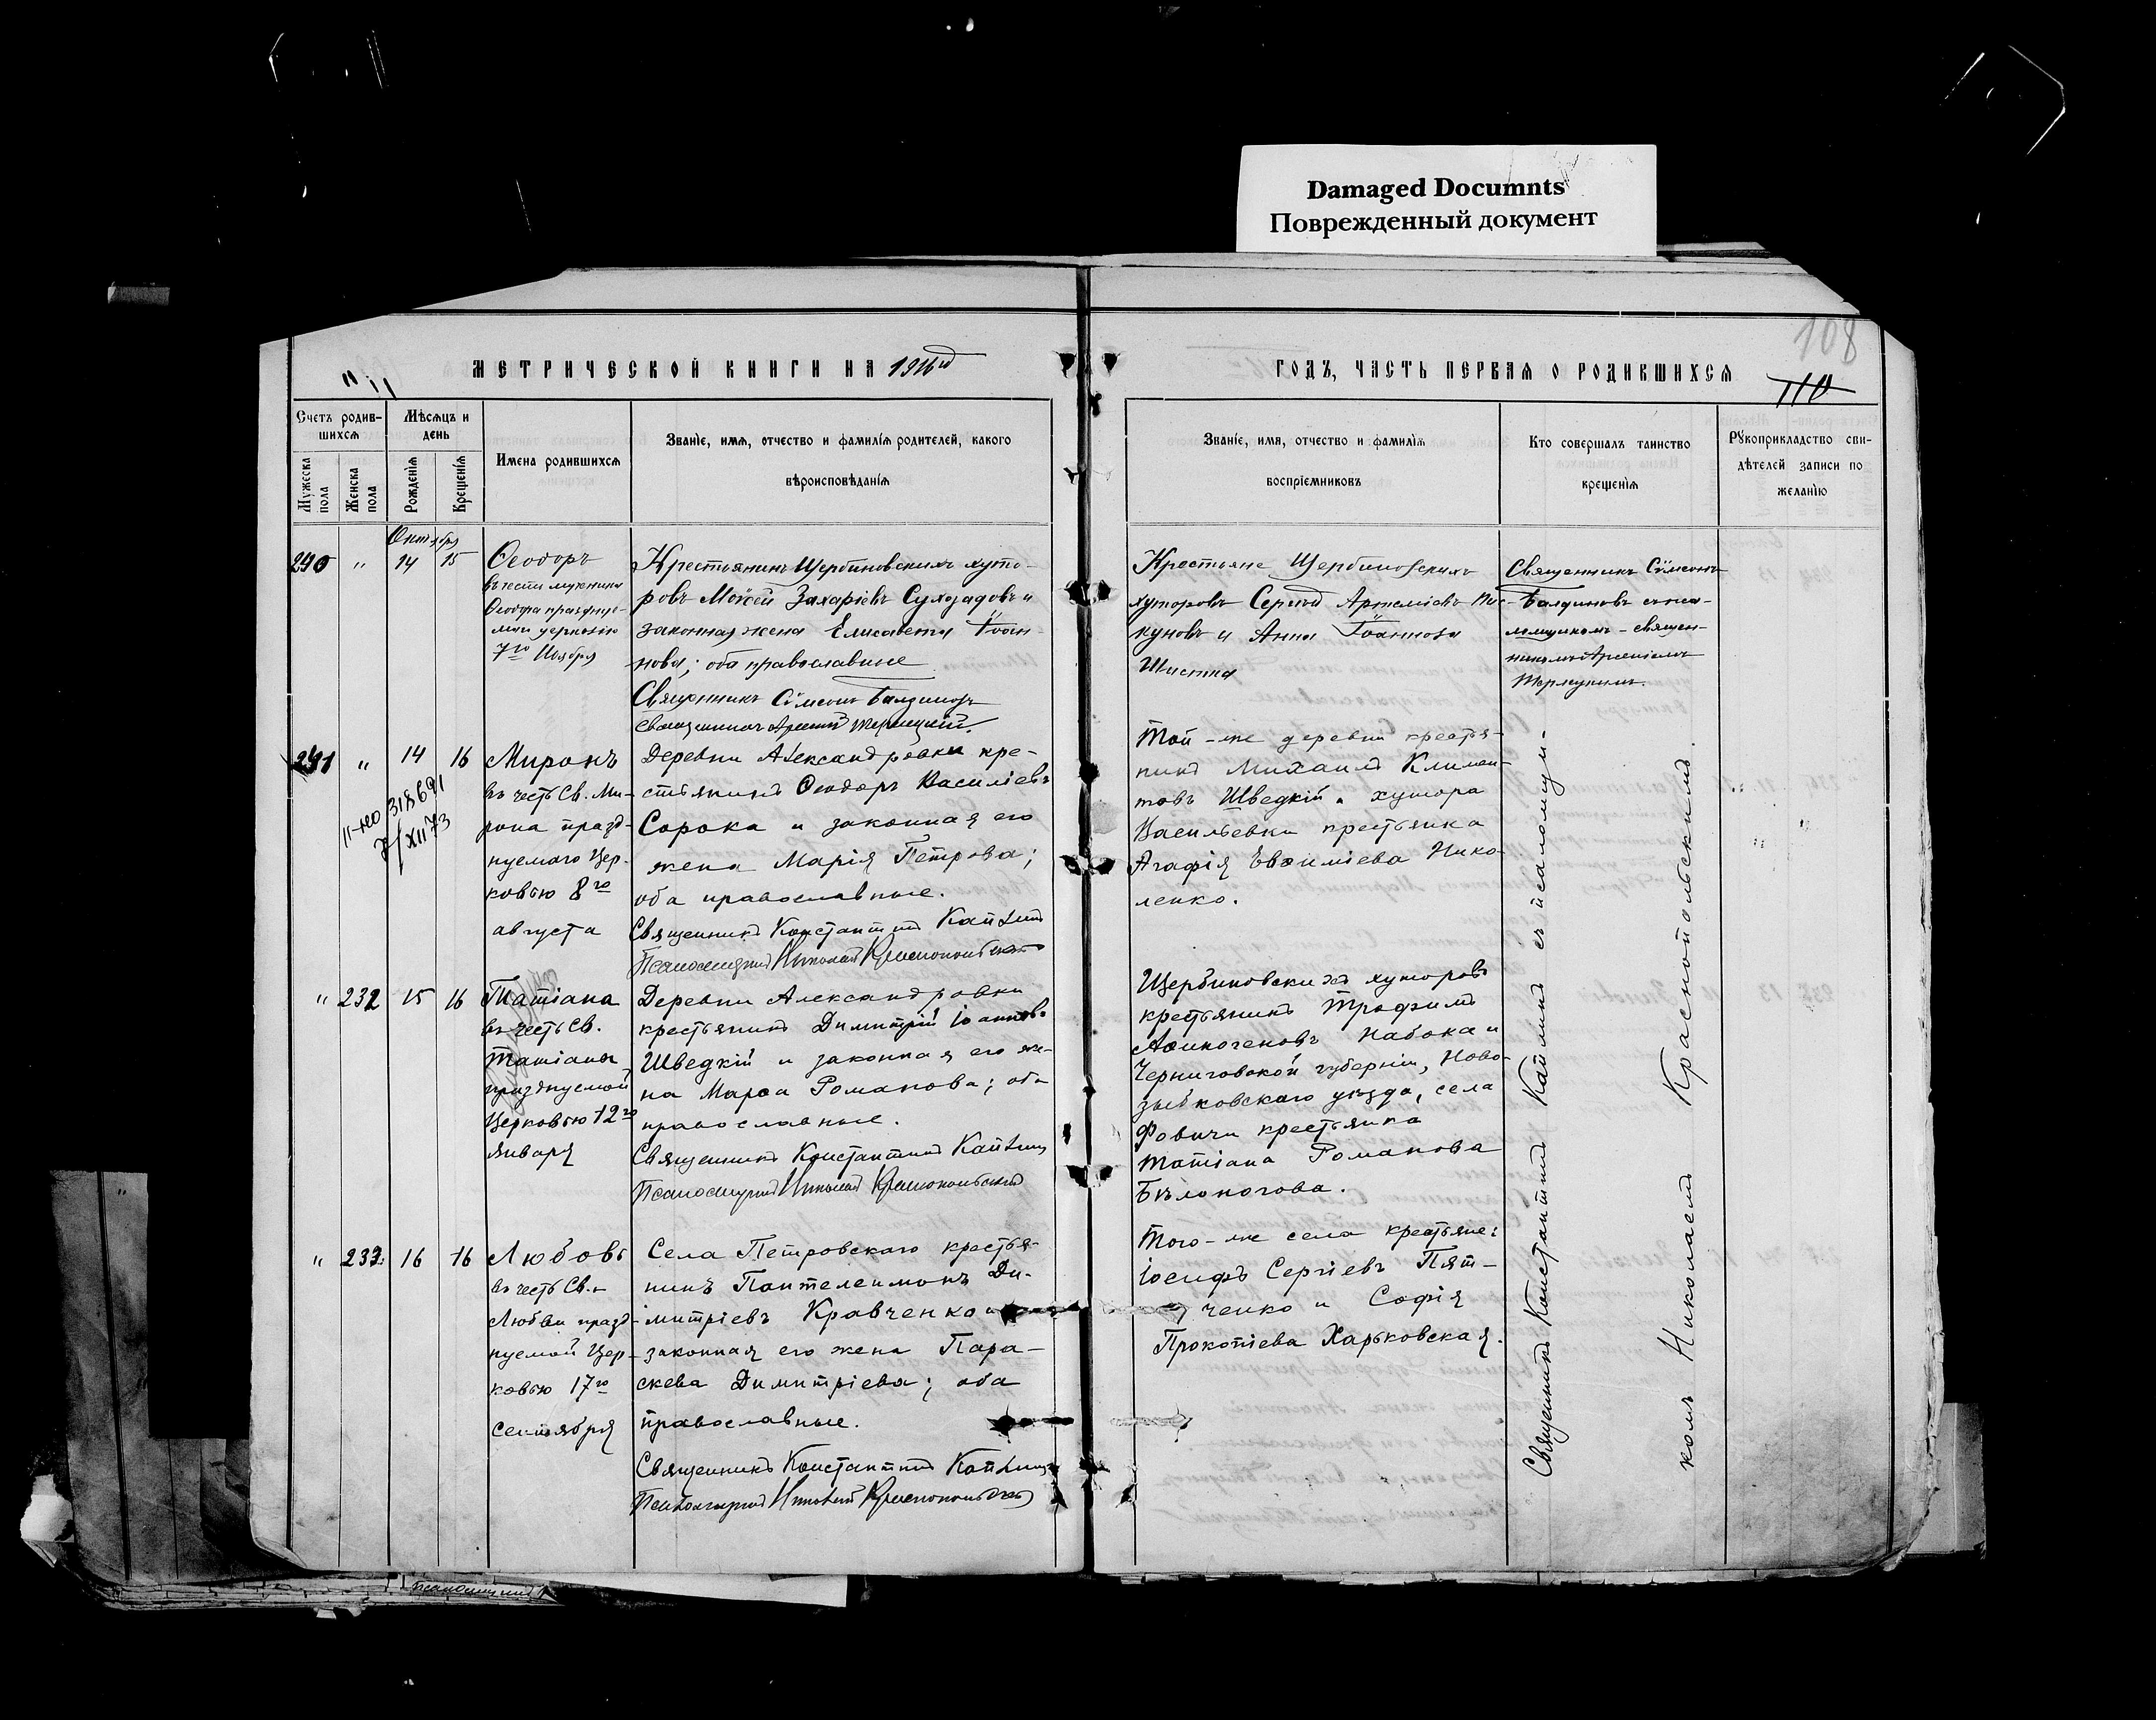 Damaged Documnts
Поврежденный документ
108
МЕТРИЧЕСКОЙ КНИГИ НА 1916й
ГОДЪ, ЧАСТЬ ПЕРВАЯ О РОДИВШИХСЯ
110
Счетъ родив-
шихся
Мужеска пола
Женска пола
Мѣсяцъ и
день
Рожденія
Крещенія
Имена родившихся
Званіе, имя, отчество и фамилія родителей, какого
вѣроисповѣданія
Званіе, имя, отчество и фамилія
воспріемниковъ
Кто совершалъ таинство
крещенія
Рукоприкладство сви-
дѣтелей записи по
желанію
Октября
240 " 14 15
Ѳеодоръ
въ честь мученика
Ѳеодора праздную-
церковію
7го Ноября
Крестьянинъ Щербиновскихъ хуто-
ровъ Моѵсей Захаріевъ Сухозадовъ и
законная жена Елисавета Іоан-
нова; оба православные
Священникъ Сѵмеонъ Балдиновъ
Священникъ Арсеній
Крестьяне Щербиновскихъ
хуторовъ Сергій Артеміевъ
куновъ и Анна Іоаннова
Священникъ Сѵмеонъ
Балдиновъ съ пса-
ломщикомъ - священ-
никомъ Арсеніемъ
241 " 14 16
II-ЯО 318691
XII 73
Миронъ
въ честь Св. Ми-
рона празд-
нуемаго Цер-
ковью 8го
августа
Деревни Александровки кре-
стьянинъ Ѳеодоръ Василіевъ
Сорока и законная его
жена Марія Петрова;
оба православные.
Священникъ Константинъ Каплинъ
Псаломщикъ Николай Краснопольскій
Той-же деревни крестья-
нинъ Михаилъ Климен-
товъ Шведкій и хутора
Васильевки крестьянка
Агафія Евѳиміева Нико-
ленко.
" 232 15 16
Татіана
въ честь Св.
Татіаны,
празднуемой
Церковью 12го
января
Деревни Александровки
крестьянинъ Димитрій Іоанновъ
Шведкій и законная его же-
на Марѳа Романова; оба
православные.
Священникъ Константинъ Каплинъ
Псаломщикъ Николай Краснопольскій
Щербиновскихъ хуторовъ
крестьянинъ Трофимъ
Аѳиногеновъ Набока и
Черниговской губерніи, Ново-
зыбковскаго уѣзда, села
Фовичи крестьянка
Татіана Романова
Бѣлоногова.
" 233 16 16
Любовь
въ честь Св.
Любви празд-
нуемой Цер-
ковью 17го
сентября
Села Петровскаго крестья-
нинъ Пантелеимонъ Ди-
митріевъ Кравченко и
законная его жена Пара-
скева Димитріева; оба
православные.
Священникъ Константинъ Каплинъ
Псаломщикъ Николай Краснопольскій
Того-же села крестьяне:
Іосифъ Сергіевъ Пят-
ченко и Софія
Прокопіева Харьковская.
Священникъ Константинъ Каплинъ съ псаломщи-
комъ Николаемъ Краснопольскимъ.